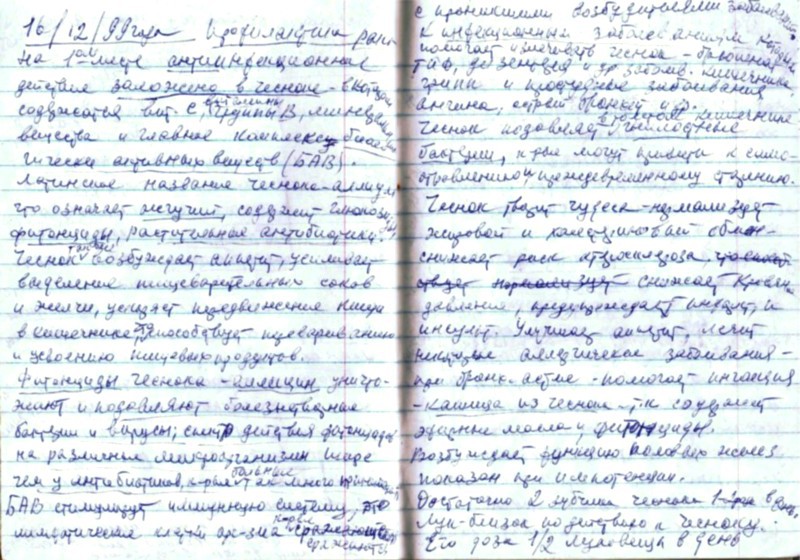 16/12/99 года Профилактика рака
На 1ом месте антиинфекционное
действие заложено в чесноке - в котором
содержатся вит. С, витамины группы В, минеральные
вещества и главное комплекс биоло-
гически активных веществ (БАВ).
Латинское название чеснока - аллиум
что означает жгучий, содержит гликозиды,
фитонциды, растительные антибиотики.
Чеснок также возбуждает аппетит, усиливает
выделение пищеварительных соков
и желчи, ускоряет передвижение пищи
в кишечнике, способствует пищеварению
и усвоению пищевых продуктов.
Фитонциды чеснока - аллицин уничто-
жают и подавляют болезнетворные
бактерии и вирусы; спектр действия фитонцидов
на различные микроорганизмы шире
чем у антибиотиков,
БАВ стимулируют иммунную систему, это
лимфатические клетки орг-зма сражаются
сражаются
с проникшими возбудителями заболеваний.
К инфекционным заболеваниям которые
помогает излечивать чеснок - брюшной
тиф, дизентерия и др. заболев. кишечника,
грипп и простудные заболевания
ангина, острый бронхит и др.
Чеснок подавляет в толстом кишечнике гнилостные
бактерии, к-рые могут привести к само-
отравлению и преждевременному старению.
Чеснок творит чудеса - нормализует
жировой и холестериновый обмен -
снижает риск атеросклероза, снижает кровян.
давление, предупреждает инфаркт, и
инсульт. Улучшает аппетит, лечит
некоторые аллергические заболевания -
при бронх. астме - помогает ингаляция
- кашица из чеснока - т.к. содержит
эфирные масла и фитонциды.
Возбуждает функцию половых желез
показан при импотенции.
Достаточно 2 зубчика чеснока в день,
Лук - близок по действию к чесноку.
Его доза 1/2 луковицы в день